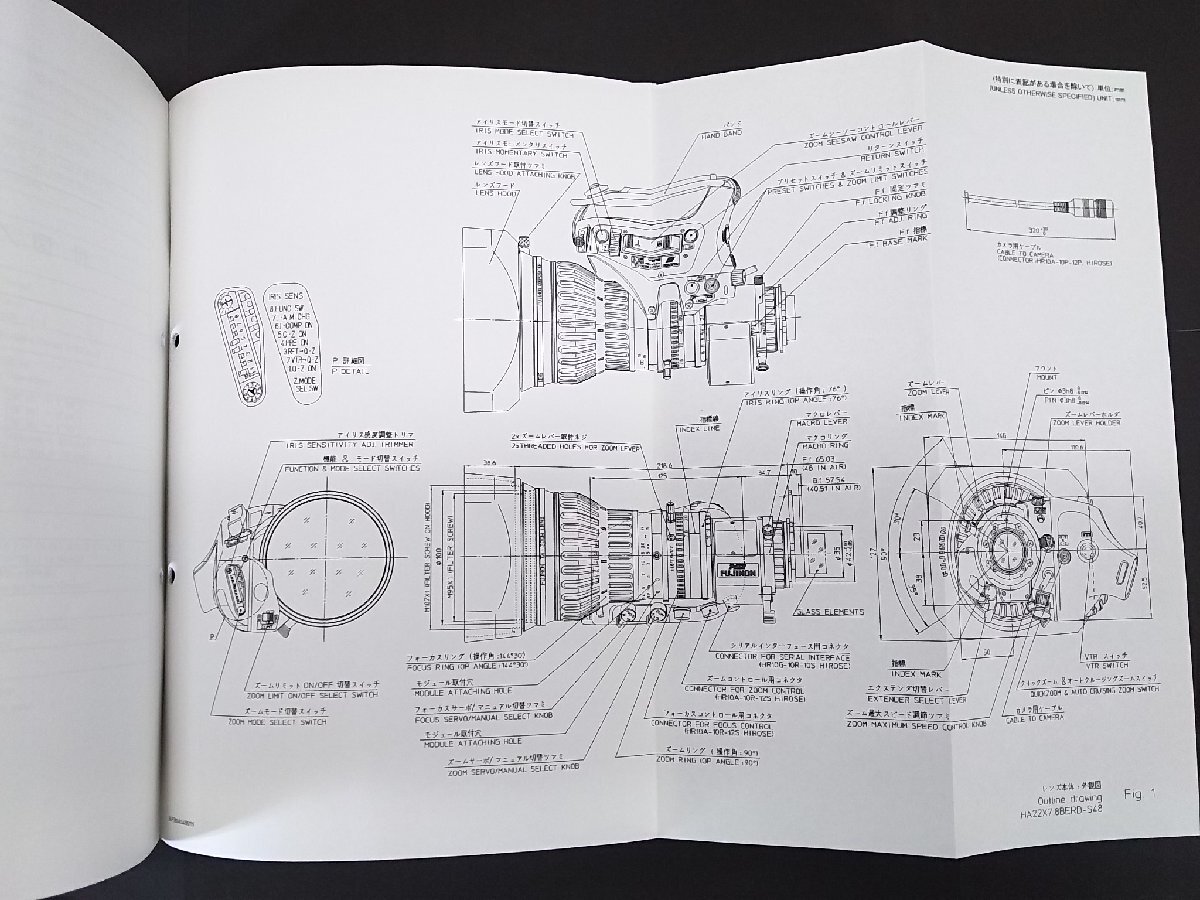 (特別に表記がある場合を除いて) 単位: mm
(UNLESS OTHERWISE SPECIFIED) UNIT: mm
アイリスモード切替スイッチ
IRIS MODE SELECT SWITCH
アイリスモーメンタリスイッチ
IRIS MOMENTARY SWITCH
レンズフード取付ツマミ
LENS HOOD ATTACHING KNOB
レンズフード
LENS HOOD
バンド
HAND BAND
ズームシーソーコントロールレバー
ZOOM SELSAW CONTROL LEVER
リターンスイッチ
RETURN SWITCH
プリセットスイッチ & ズームリミットスイッチ
PRESET SWITCHES & ZOOM LIMIT SWITCHES
F.f 固定ツマミ
F.f LOCKING KNOB
F.f 調整リング
F.f ADJ RING
F.f 指標
F.f BASE MARK
カメラ用ケーブル
CABLE TO CAMERA
(CONNECTOR:HR10A-10R-12P, HIROSE)
IRIS SENS
Z.MODE
SEL SW
P 詳細図
P DETAIL
アイリス感度調整トリマ
IRIS SENSITIVITY ADJ. TRIMMER
機能 & モード切替スイッチ
FUNCTION & MODE SELECT SWITCHES
2×ズームレバー取付ネジ
THREADED HOLES FOR ZOOM LEVER
指標線
INDEX LINE
アイリスリング (操作角:76°)
IRIS RING (OP ANGLE:76°)
マクロレバー
MACRO LEVER
マクロリング
MACRO RING
F.f 65.03
(48 IN AIR)
B.f 57.54
(40.51 IN AIR)
ズームレバー
ZOOM LEVER
指標
INDEX MARK
マウント
MOUNT
ピン
PIN
ズームレバーホルダ
ZOOM LEVER HOLDER
146
110.6
38.6
218.6
54.7
FUJINON
GLASS ELEMENTS
50
P
ズームリミット ON/OFF 切替スイッチ
ZOOM LIMIT ON/OFF SELECT SWITCH
ズームモード切替スイッチ
ZOOM MODE SELECT SWITCH
フォーカスリング (操作角:144°30')
FOCUS RING (OP ANGLE:144°30')
モジュール取付穴
MODULE ATTACHING HOLE
フォーカスサーボ/マニュアル切替ツマミ
FOCUS SERVO/MANUAL SELECT KNOB
モジュール取付穴
MODULE ATTACHING HOLE
ズームサーボ/マニュアル切替ツマミ
ZOOM SERVO/MANUAL SELECT KNOB
シリアルインターフェース用コネクタ
CONNECTOR FOR SERIAL INTERFACE
(HR10G-10R-12S HIROSE)
ズームコントロール用コネクタ
CONNECTOR FOR ZOOM CONTROL
(HR10A-10R-12S HIROSE)
フォーカスコントロール用コネクタ
CONNECTOR FOR FOCUS CONTROL
(HR10A-10R-12S HIROSE)
ズームリング (操作角:90°)
ZOOM RING (OP ANGLE:90°)
指標
INDEX MARK
エクステンダ切替レバー
EXTENDER SELECT LEVER
ズーム最大スピード調節ツマミ
ZOOM MAXIMUM SPEED CONTROL KNOB
VTR スイッチ
VTR SWITCH
クイックズーム & オートクルージングズームスイッチ
QUICKZOOM & AUTO CRUISING ZOOM SWITCH
カメラ用ケーブル
CABLE TO CAMERA
レンズ本体:外観図
Outline drawing
HA22X7.8BERD-S48
Fig. 1